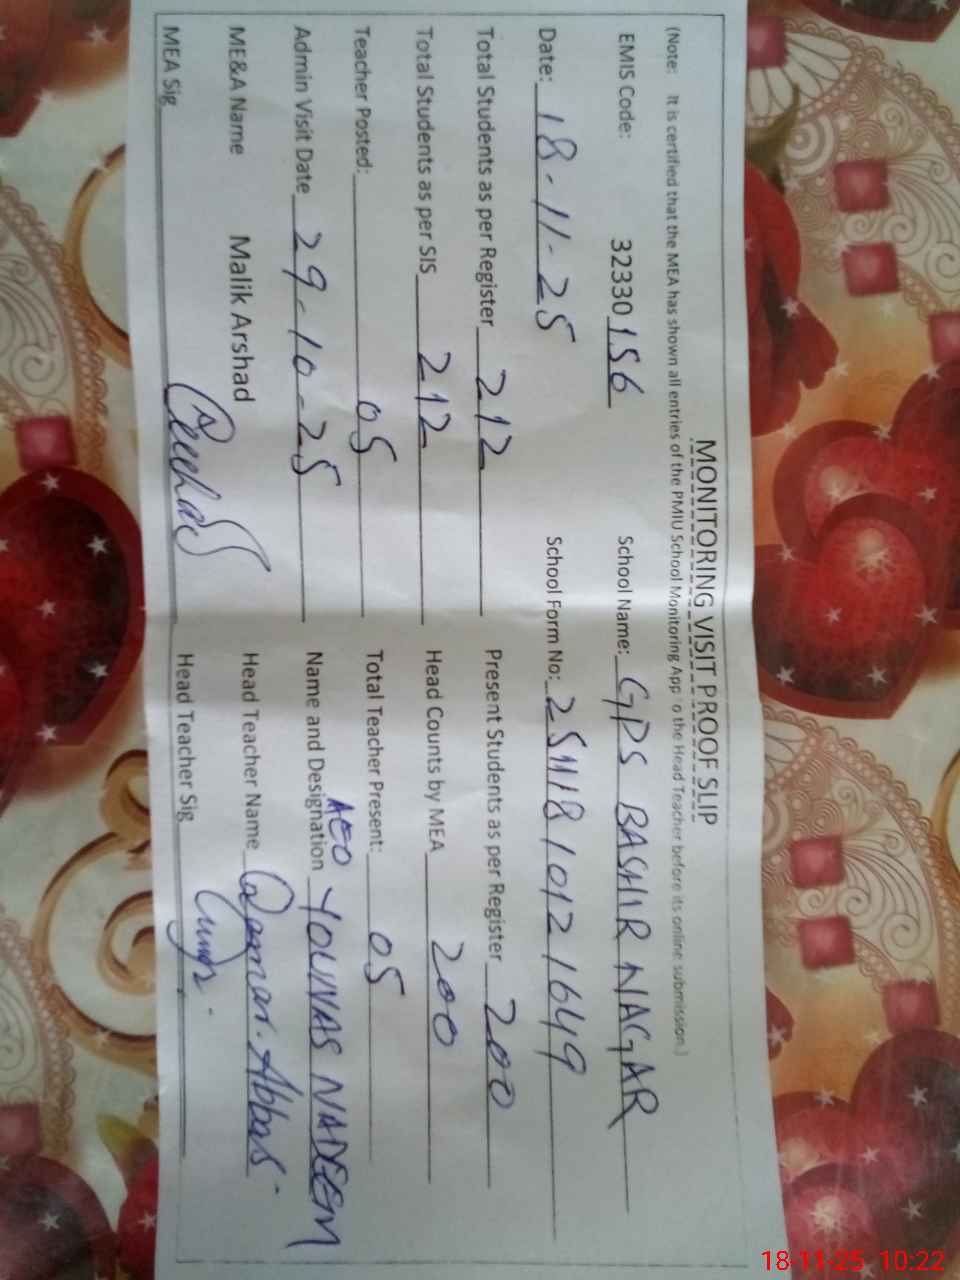 MONITORING VISIT PROOF SLIP
(Note: It is certified that the MEA has shown all entries of the PMIU School Monitoring App to the Head Teacher before its online submission.)
EMIS Code: 32330156 School Name: GPS BASHIR NAGAR
Date: 18-11-25 School Form No: 2511181012 1649
Total Students as per Register 212 Present Students as per Register 200
Total Students as per SIS 212 Head Counts by MEA 200
Teacher Posted: 05 Total Teacher Present: 05
Admin Visit Date 29-10-25 Name and Designation AEO YOUNAS NADEEM
ME&A Name Malik Arshad Head Teacher Name Qamar Abbas
MEA Sig Head Teacher Sig
18-11-25 10:22